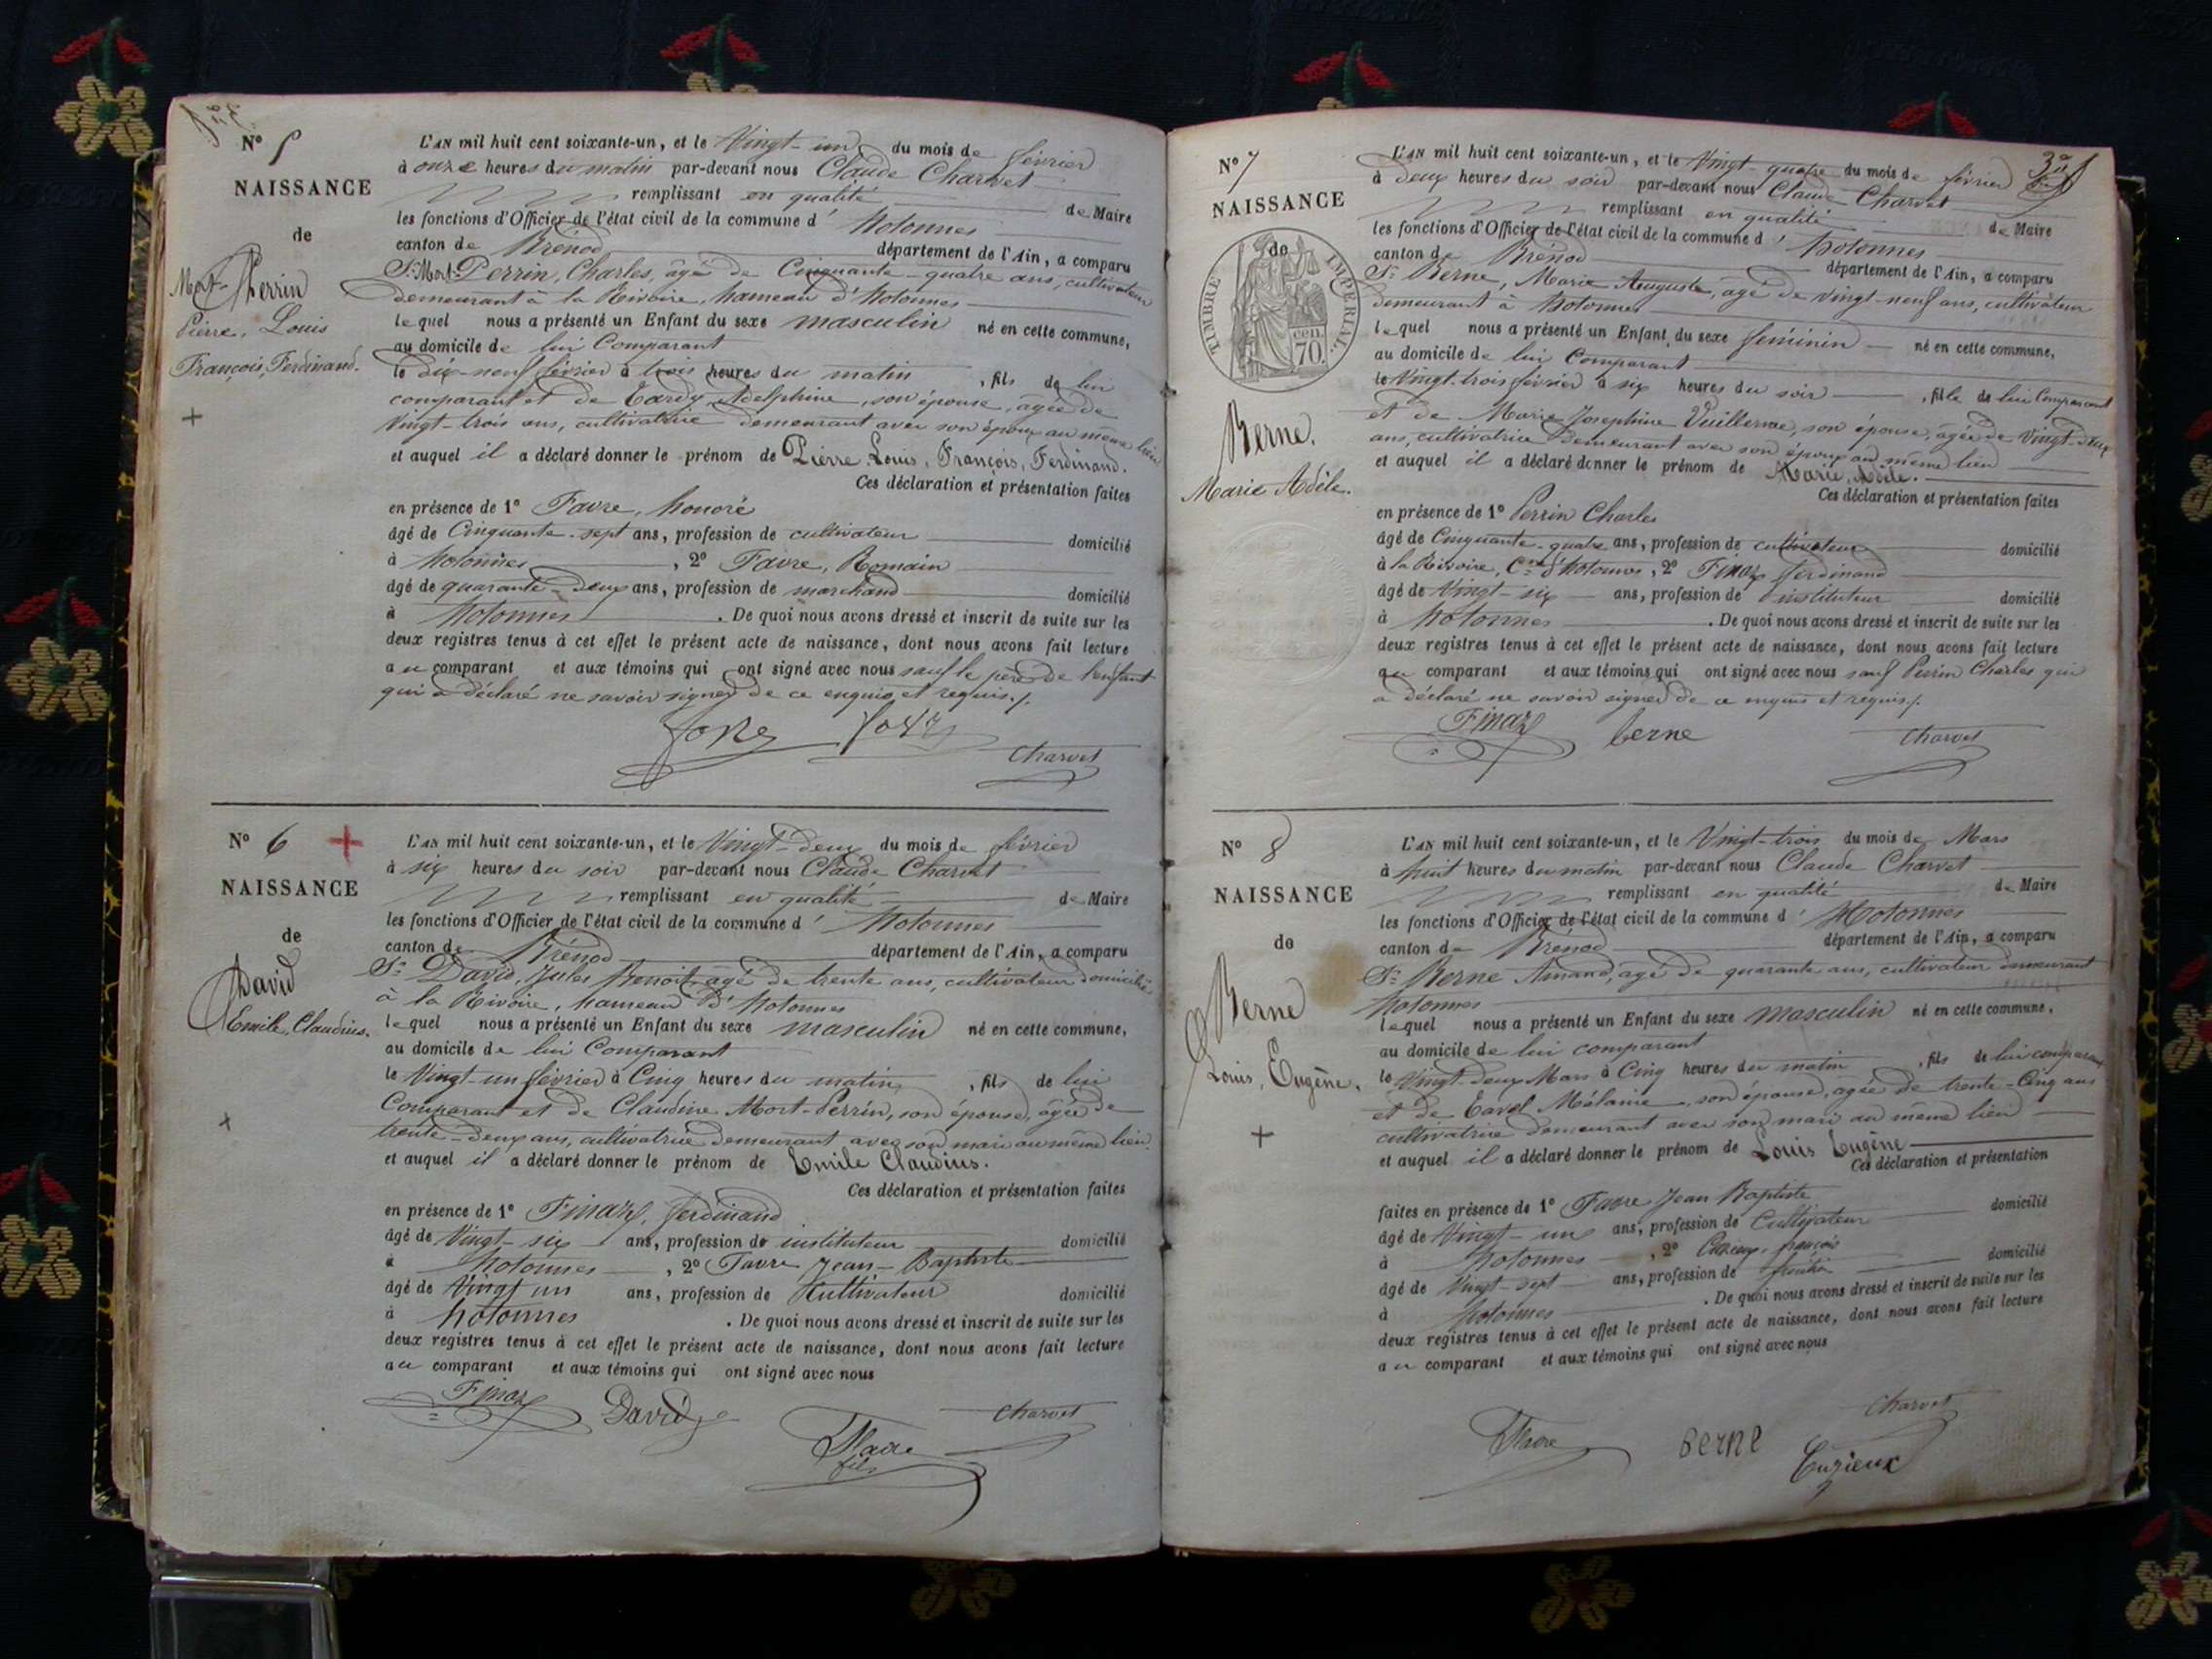 N° 5
NAISSANCE
de
Mort-Perrin
Pierre, Louis
François, Ferdinand.
L'AN mil huit cent soixante-un, et le Vingt-un du mois de février
à onze heures du matin par-devant nous Claude Charvet
remplissant en qualité de Maire
les fonctions d'Officier de l'état civil de la commune d' hotonnes
canton de Brénod département de l'Ain, a comparu
Sr. Mort-Perrin, Charles, âgé de Cinquante-quatre ans, cultivateur
demeurant à la Rivoire, hameau d'hotonnes
lequel nous a présenté un Enfant du sexe masculin né en cette commune,
au domicile de lui Comparant
le dix-neuf février à trois heures du matin, fils de lui
comparant et de Tardy Adelphine, son épouse, âgée de
Vingt-trois ans, cultivatrice demeurant avec son époux au même lieu
et auquel il a déclaré donner le prénom de Pierre, Louis, François, Ferdinand.
Ces déclaration et présentation faites
en présence de 1° Favre, honoré
âgé de Cinquante-sept ans, profession de cultivateur domicilié
à hotonnes, 2° Favre, Romain
âgé de quarante-deux ans, profession de marchand domicilié
à hotonnes. De quoi nous avons dressé et inscrit de suite sur les
deux registres tenus à cet effet le présent acte de naissance, dont nous avons fait lecture
au comparant et aux témoins qui ont signé avec nous sauf le père de l'enfant
qui a déclaré ne savoir signer de ce enquis et requis./.
Charvet
N° 6
NAISSANCE
de
David
Emile, Claudius.
L'AN mil huit cent soixante-un, et le Vingt-deux du mois de février
à six heures du soir par-devant nous Claude Charvet
remplissant en qualité de Maire
les fonctions d'Officier de l'état civil de la commune d' hotonnes
canton de Brénod département de l'Ain, a comparu
Sr. David, Jules Benoit, âgé de trente ans, cultivateur domicilié
à la Rivoire, hameau d'hotonnes
lequel nous a présenté un Enfant du sexe masculin né en cette commune,
au domicile de lui Comparant
le Vingt-un février à Cinq heures du matin, fils de lui
Comparant et de Claudine Mort-Perrin, son épouse, âgée de
trente-deux ans, cultivatrice demeurant avec son mari au même lieu
et auquel il a déclaré donner le prénom de Emile Claudius.
Ces déclaration et présentation faites
en présence de 1° Finaz, ferdinand
âgé de Vingt-six ans, profession de instituteur domicilié
à hotonnes, 2° Favre Jean-Baptiste
âgé de Vingt un ans, profession de Cultivateur domicilié
à hotonnes. De quoi nous avons dressé et inscrit de suite sur les
deux registres tenus à cet effet le présent acte de naissance, dont nous avons fait lecture
au comparant et aux témoins qui ont signé avec nous
Finaz David Charvet
Favre
fils
N° 7
NAISSANCE
de
TIMBRE IMPERIAL.
70 cen.
Berne.
Marie Adèle.
L'AN mil huit cent soixante-un, et le Vingt-quatre du mois de février
à deux heures du soir par-devant nous Claude Charvet
remplissant en qualité de Maire
les fonctions d'Officier de l'état civil de la commune d' hotonnes
canton de Brénod département de l'Ain, a comparu
Sr. Berne, Marie Auguste, âgé de vingt-neuf ans, cultivateur
demeurant à hotonnes
lequel nous a présenté un Enfant du sexe féminin né en cette commune,
au domicile de lui Comparant
le Vingt-trois février à six heures du soir, fille de lui Comparant
et de Marie Josephine Vuillerme, son épouse, âgée de Vingt-deux
ans, cultivatrice demeurant avec son époux au même lieu
et auquel il a déclaré donner le prénom de Marie, Adèle.
Ces déclaration et présentation faites
en présence de 1° Perrin Charles
âgé de Cinquante-quatre ans, profession de cultivateur domicilié
à la Rivoire, Cne d'hotonnes, 2° Finaz ferdinand
âgé de Vingt-six ans, profession de instituteur domicilié
à hotonnes. De quoi nous avons dressé et inscrit de suite sur les
deux registres tenus à cet effet le présent acte de naissance, dont nous avons fait lecture
au comparant et aux témoins qui ont signé avec nous sauf Perrin Charles qui
a déclaré ne savoir signer de ce enquis et requis./.
Finaz berne Charvet
N° 8
NAISSANCE
de
Berne
Louis, Eugène.
L'AN mil huit cent soixante-un, et le Vingt-trois du mois de Mars
à huit heures du matin par-devant nous Claude Charvet
remplissant en qualité de Maire
les fonctions d'Officier de l'état civil de la commune d' Hotonnes
canton de Brénod département de l'Ain, a comparu
Sr. Berne Amand, âgé de quarante ans, cultivateur demeurant
hotonnes
lequel nous a présenté un Enfant du sexe masculin né en cette commune,
au domicile de lui comparant
le Vingt-deux Mars à Cinq heures du matin, fils de lui comparant
et de Mélanie, son épouse, âgée de trente-Cinq ans
cultivatrice demeurant avec son mari au même lieu
et auquel il a déclaré donner le prénom de Louis Eugène
Ces déclaration et présentation
faites en présence de 1° Favre Jean Baptiste
âgé de Vingt-un ans, profession de Cultivateur domicilié
à hotonnes, 2° Cuzieux françois
âgé de Vingt-sept ans, profession de domicilié
à hotonnes. De quoi nous avons dressé et inscrit de suite sur les
deux registres tenus à cet effet le présent acte de naissance, dont nous avons fait lecture
au comparant et aux témoins qui ont signé avec nous
Charvet
Favre Berne Cuzieux